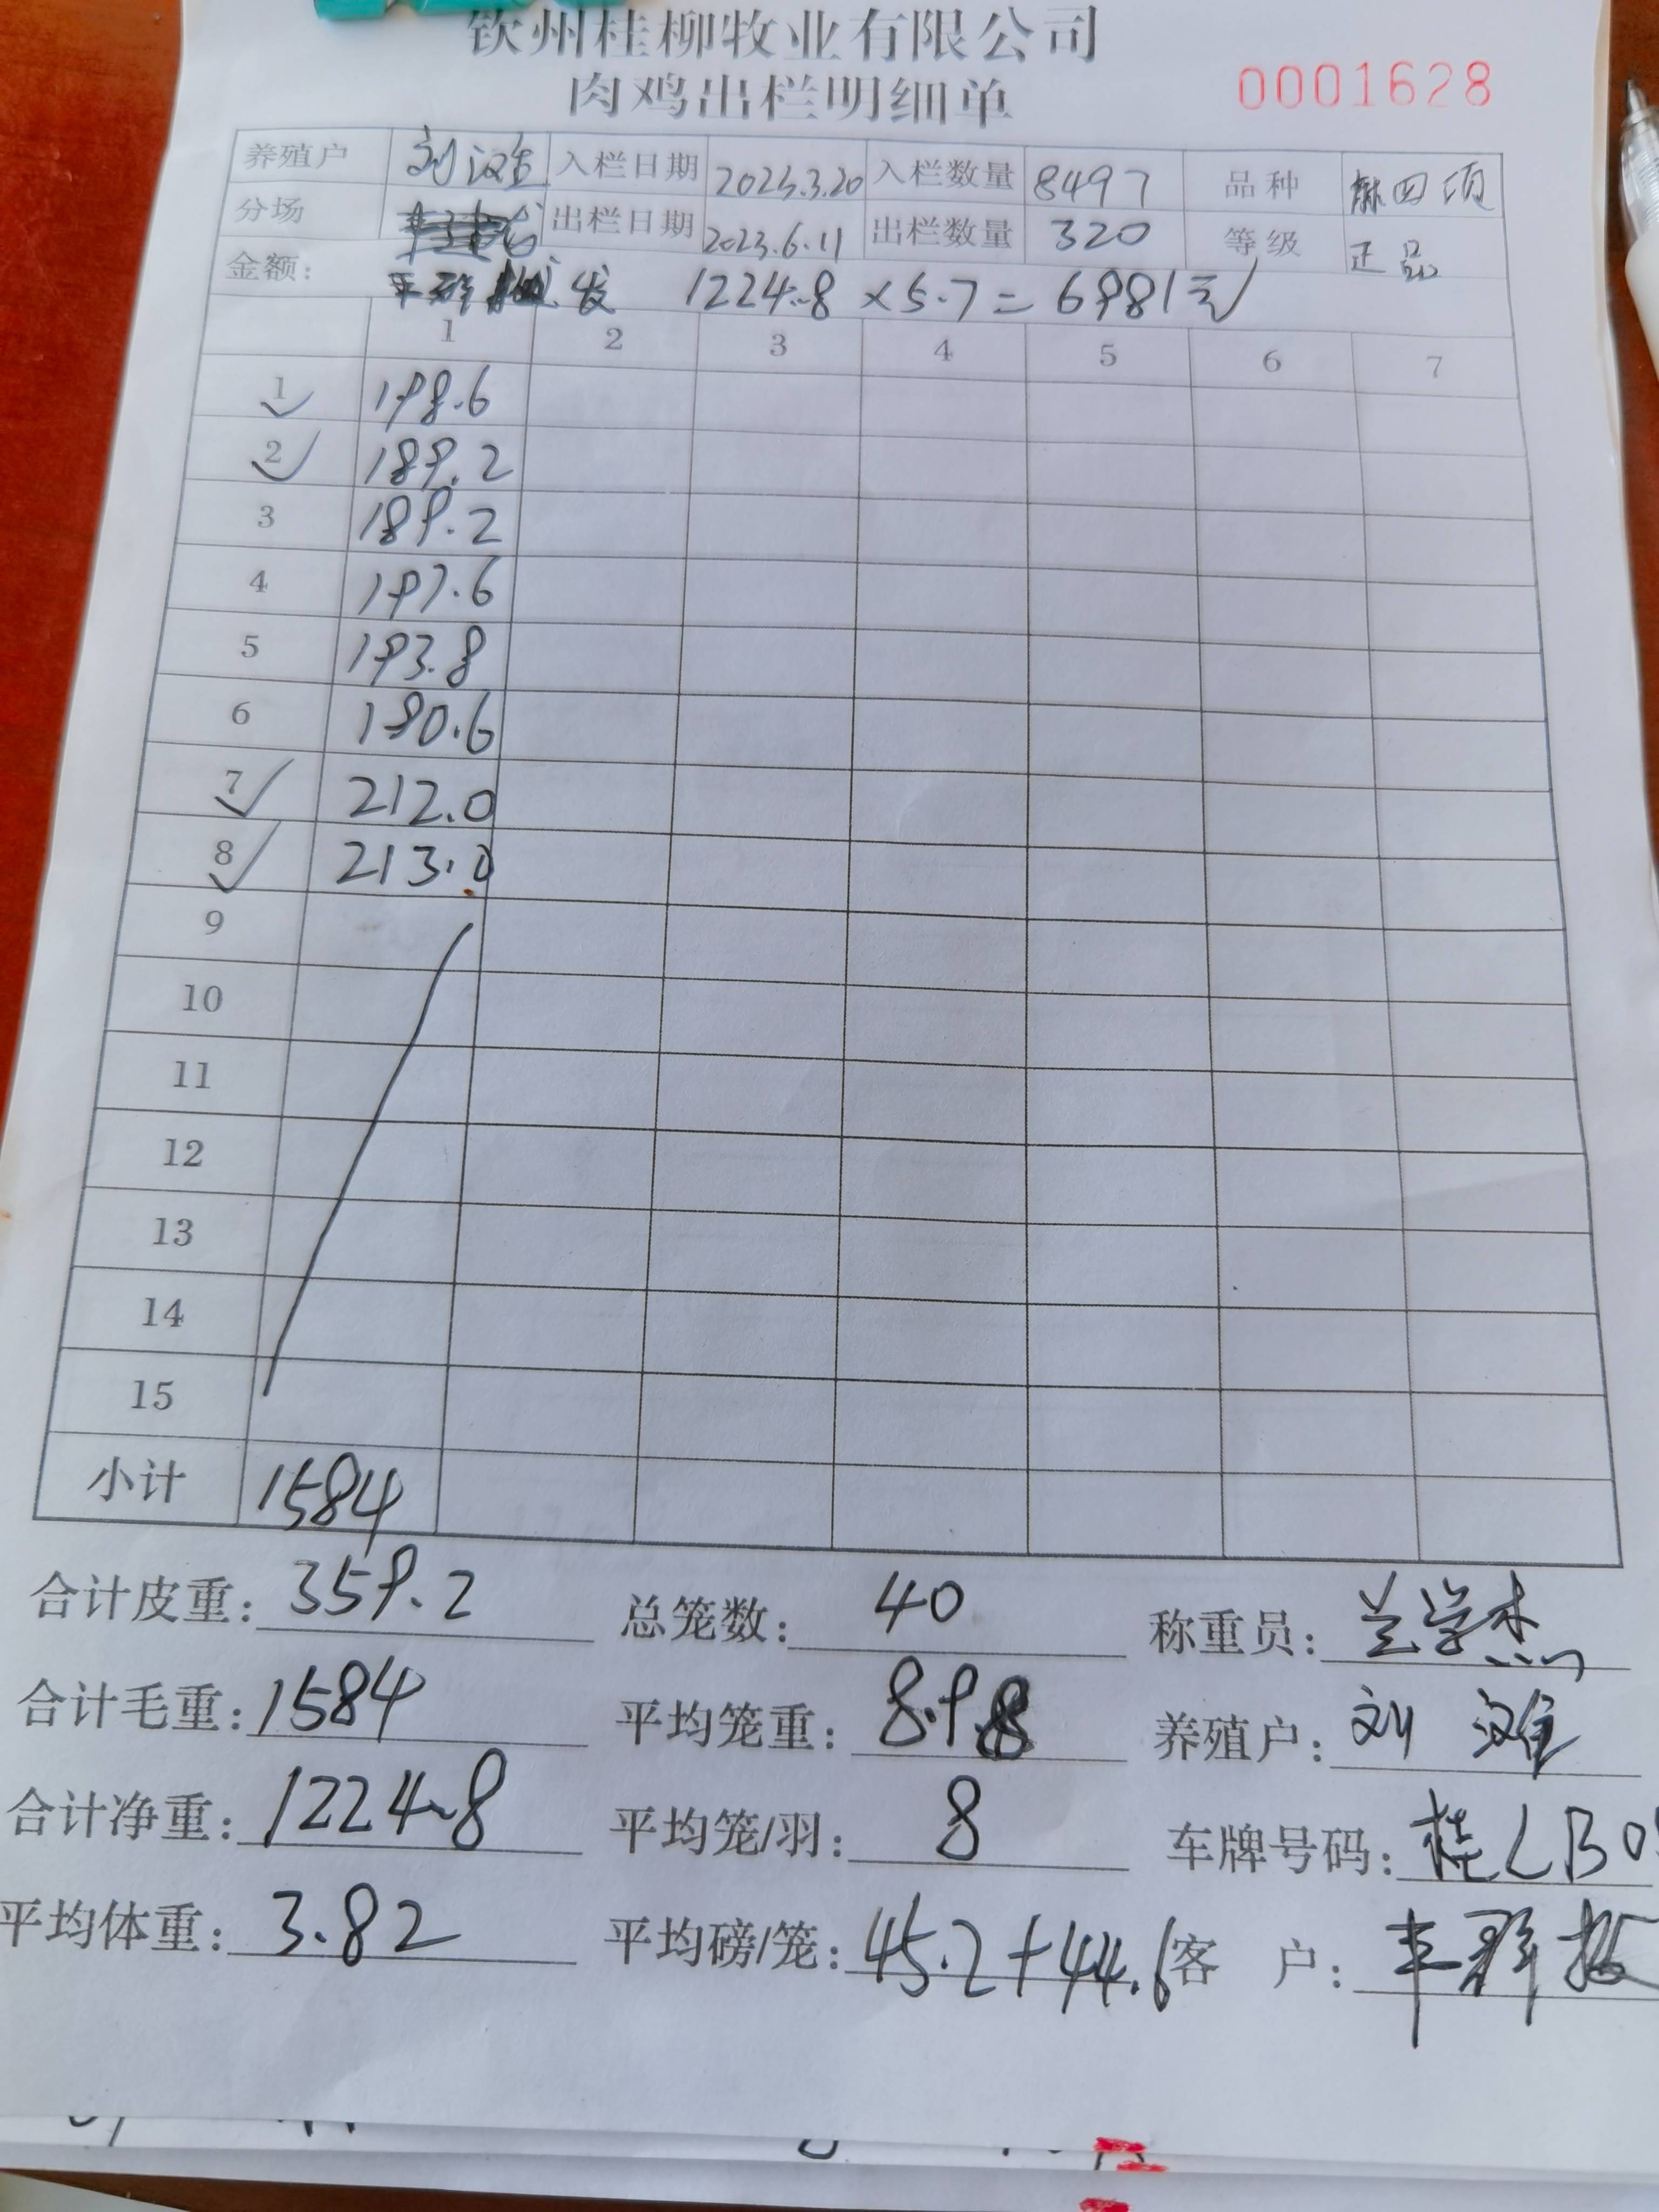 钦州桂柳牧业有限公司
肉鸡出栏明细单 0001628
养殖户 刘 入栏日期 2023.3.20 入栏数量 8497 品种 麻四项
分场 出栏日期 2023.6.11 出栏数量 320 等级 正品
金额: 发 1224.8×5.7=6981元
1 2 3 4 5 6 7
1 198.6
2 189.2
3 189.2
4 197.6
5 193.8
6 190.6
7 212.0
8 213.0
9
10
11
12
13
14
15
小计 1584
合计皮重: 359.2 总笼数: 40 称重员: 兰学杰
合计毛重: 1584 平均笼重: 8.98 养殖户: 刘
合计净重: 1224.8 平均笼/羽: 8 车牌号码: 桂LB0
平均体重: 3.82 平均磅/笼: 45.2+44.6 客 户: